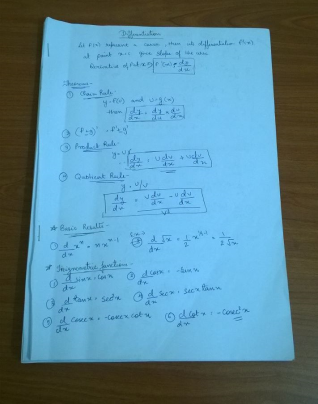 Differentiation
Let f(x) represent a curve, then its differentiation f'(x)
at point x= gives slope of the curve
Derivative of f at x = f'(x) = dy/dx
Theorem -
① Chain Rule -
y = f(u) and u = g(x)
then dy/dx = dy/du × du/dx
② (f+g)' = f'+g'
③ Product Rule -
y = u.v
dy/dx = u dv/dx + v du/dx
④ Quotient Rule -
y = u/v
dy/dx = v du/dx - u dv/dx
v²
* Basic Results -
① d/dx xⁿ = n xⁿ⁻¹ d/dx √x = 1/2 x = 1/2√x
* Trigonometric functions -
① d/dx sinx = cosx ② d/dx cosx = -sinx
③ d/dx tanx = sec²x ④ d/dx secx = secx tanx
⑤ d/dx cosecx = -cosecx cotx ⑥ d/dx cotx = -cosec²x